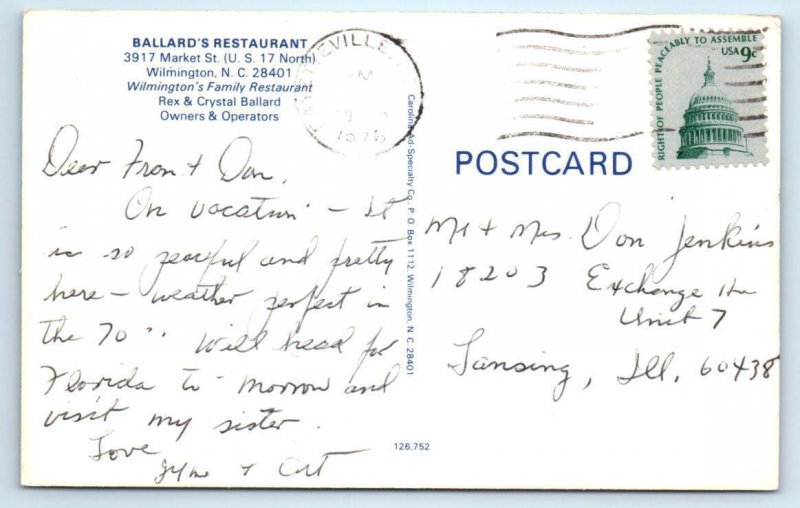 BALLARD'S RESTAURANT
3917 Market St. (U. S. 17 North)
Wilmington, N. C. 28401
Wilmington's Family Restaurant
Rex & Crystal Ballard
Owners & Operators
Dear Fran + Don,
On vacation - It
is so peaceful and pretty
here - weather perfect in
the 70's. Will head for
Florida to-morrow and
visit my sister.
Love
+ Art
Carolina Ad-Specialty Co., P. O. Box 1112, Wilmington, N. C. 28401
126.752
EVILLE
1976
RIGHT OF PEOPLE PEACEABLY TO ASSEMBLE
USA 9c
POSTCARD
Mr + Mrs. Don Jenkins
18203 Exchange
Unit 7
Lansing, Ill. 60438